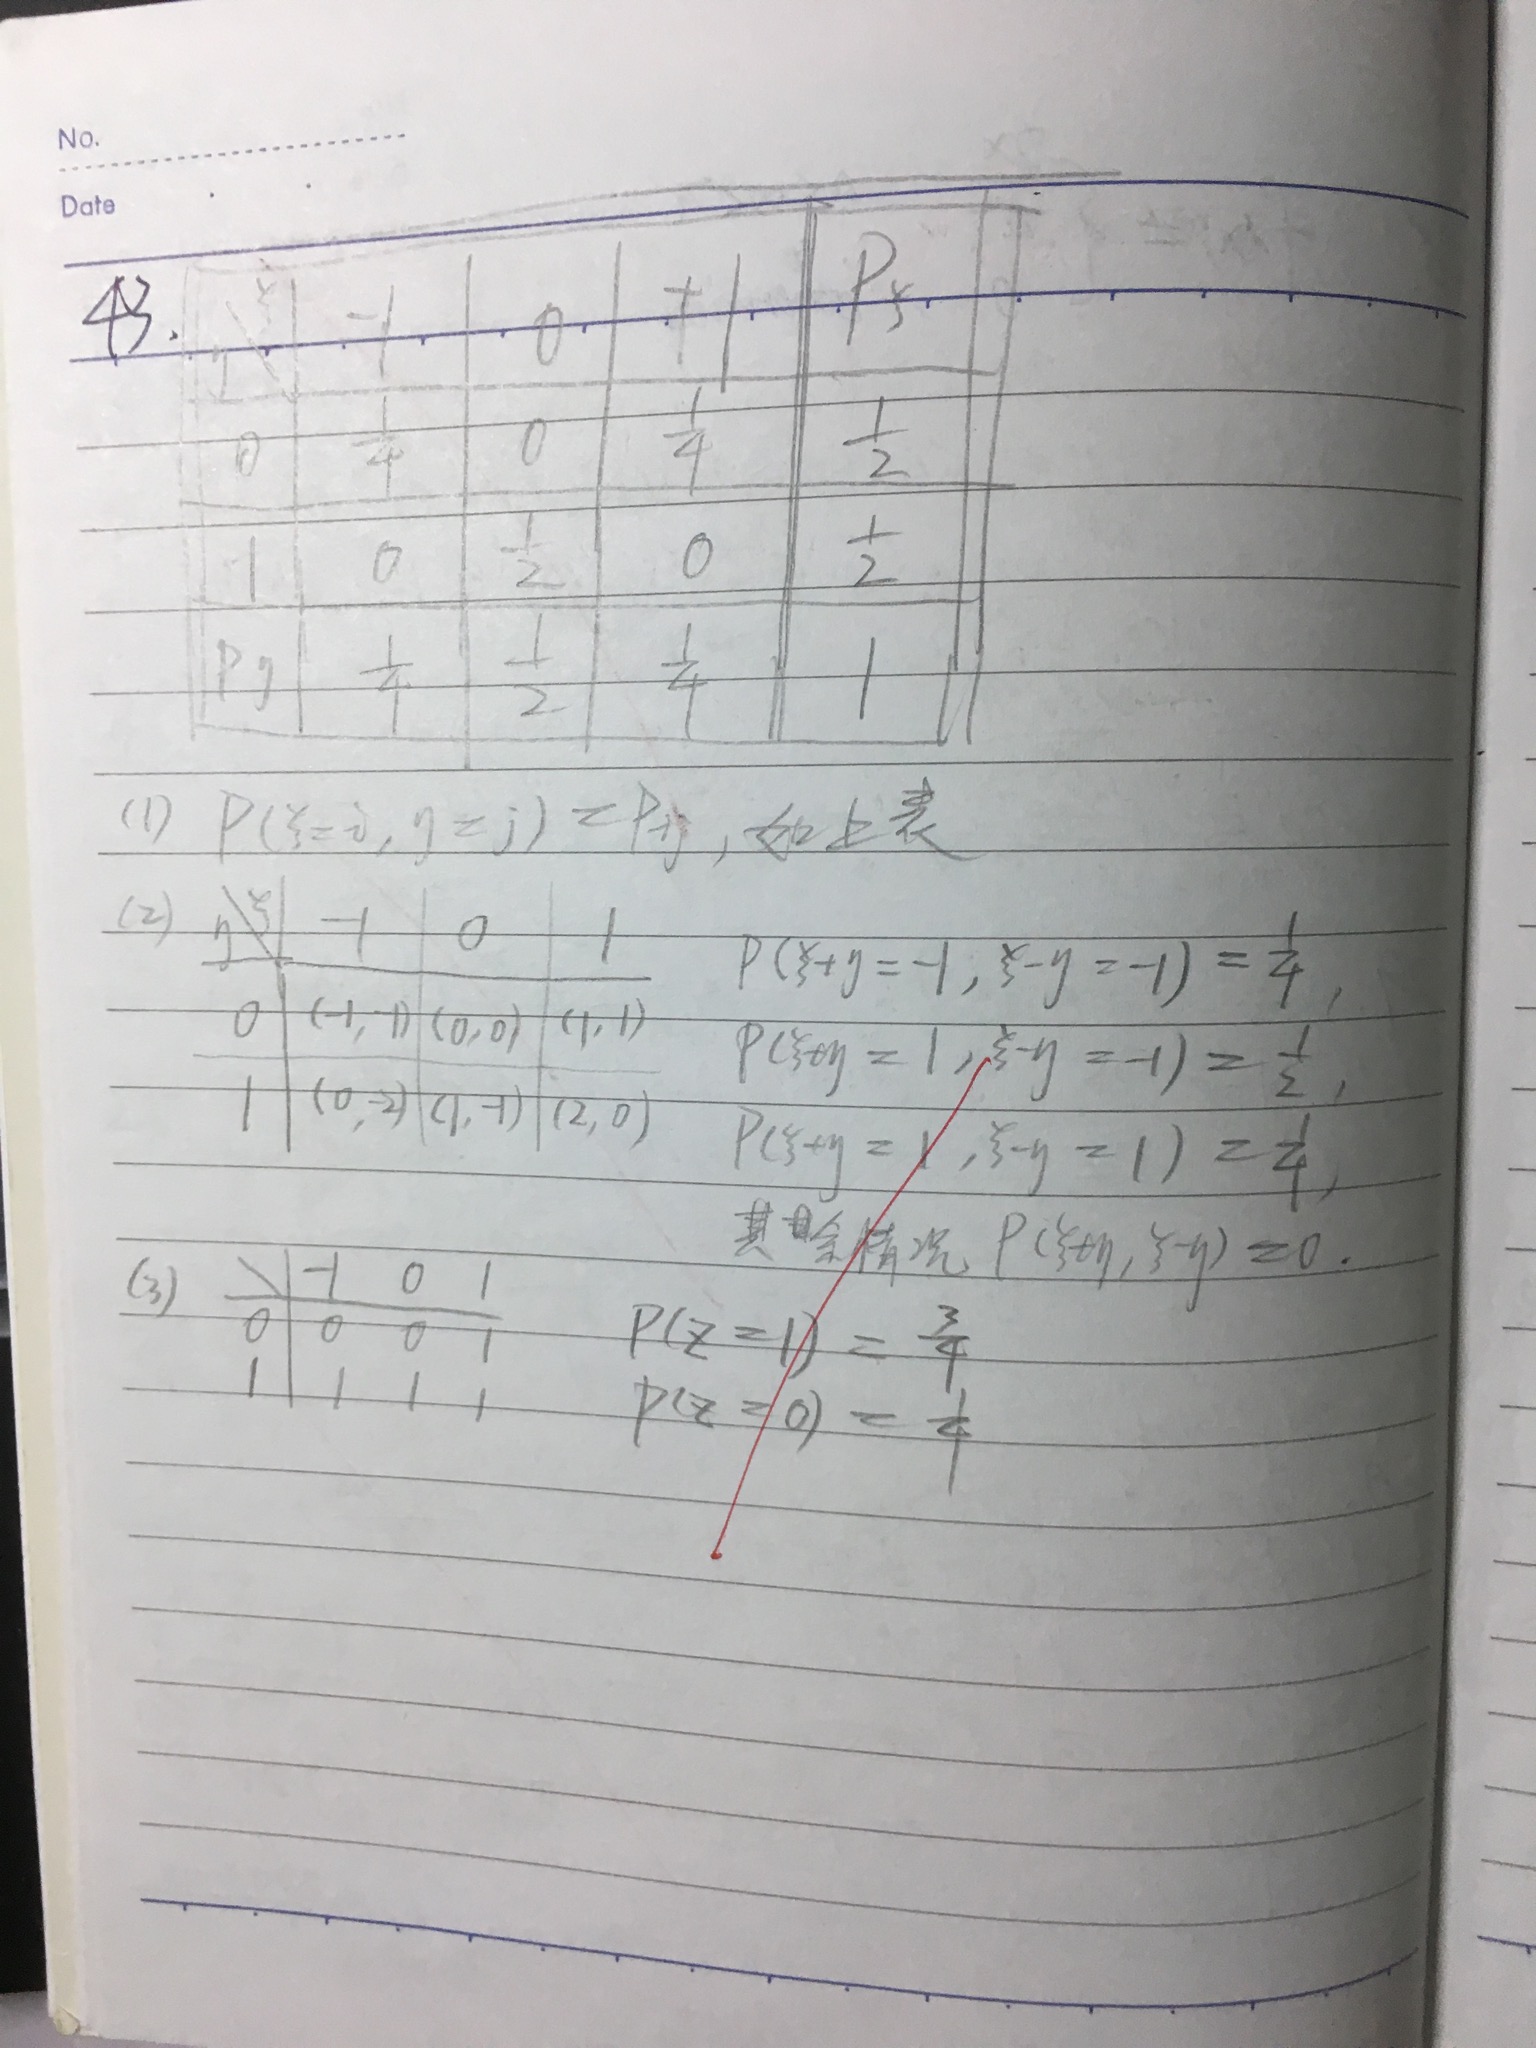 No.
Date
43.
ξ -1 0 +1 Pξ
η
0 1/4 0 1/4 1/2
1 0 1/2 0 1/2
Pη 1/4 1/2 1/4 1
(1) P(ξ=i, η=j) = Pij, 如上表
(2) η\ξ -1 0 1
0 (-1,-1) (0,0) (1,1)
1 (0,-2) (1,-1) (2,0)
P(ξ+η=-1, ξ-η=-1) = 1/4,
P(ξ+η=1, ξ-η=-1) = 1/2,
P(ξ+η=1, ξ-η=1) = 1/4,
其余情况 P(ξ+η, ξ-η)=0.
(3) \ -1 0 1
0 0 0 1
1 1 1 1
P(z=1) = 3/4
P(z=0) = 1/4